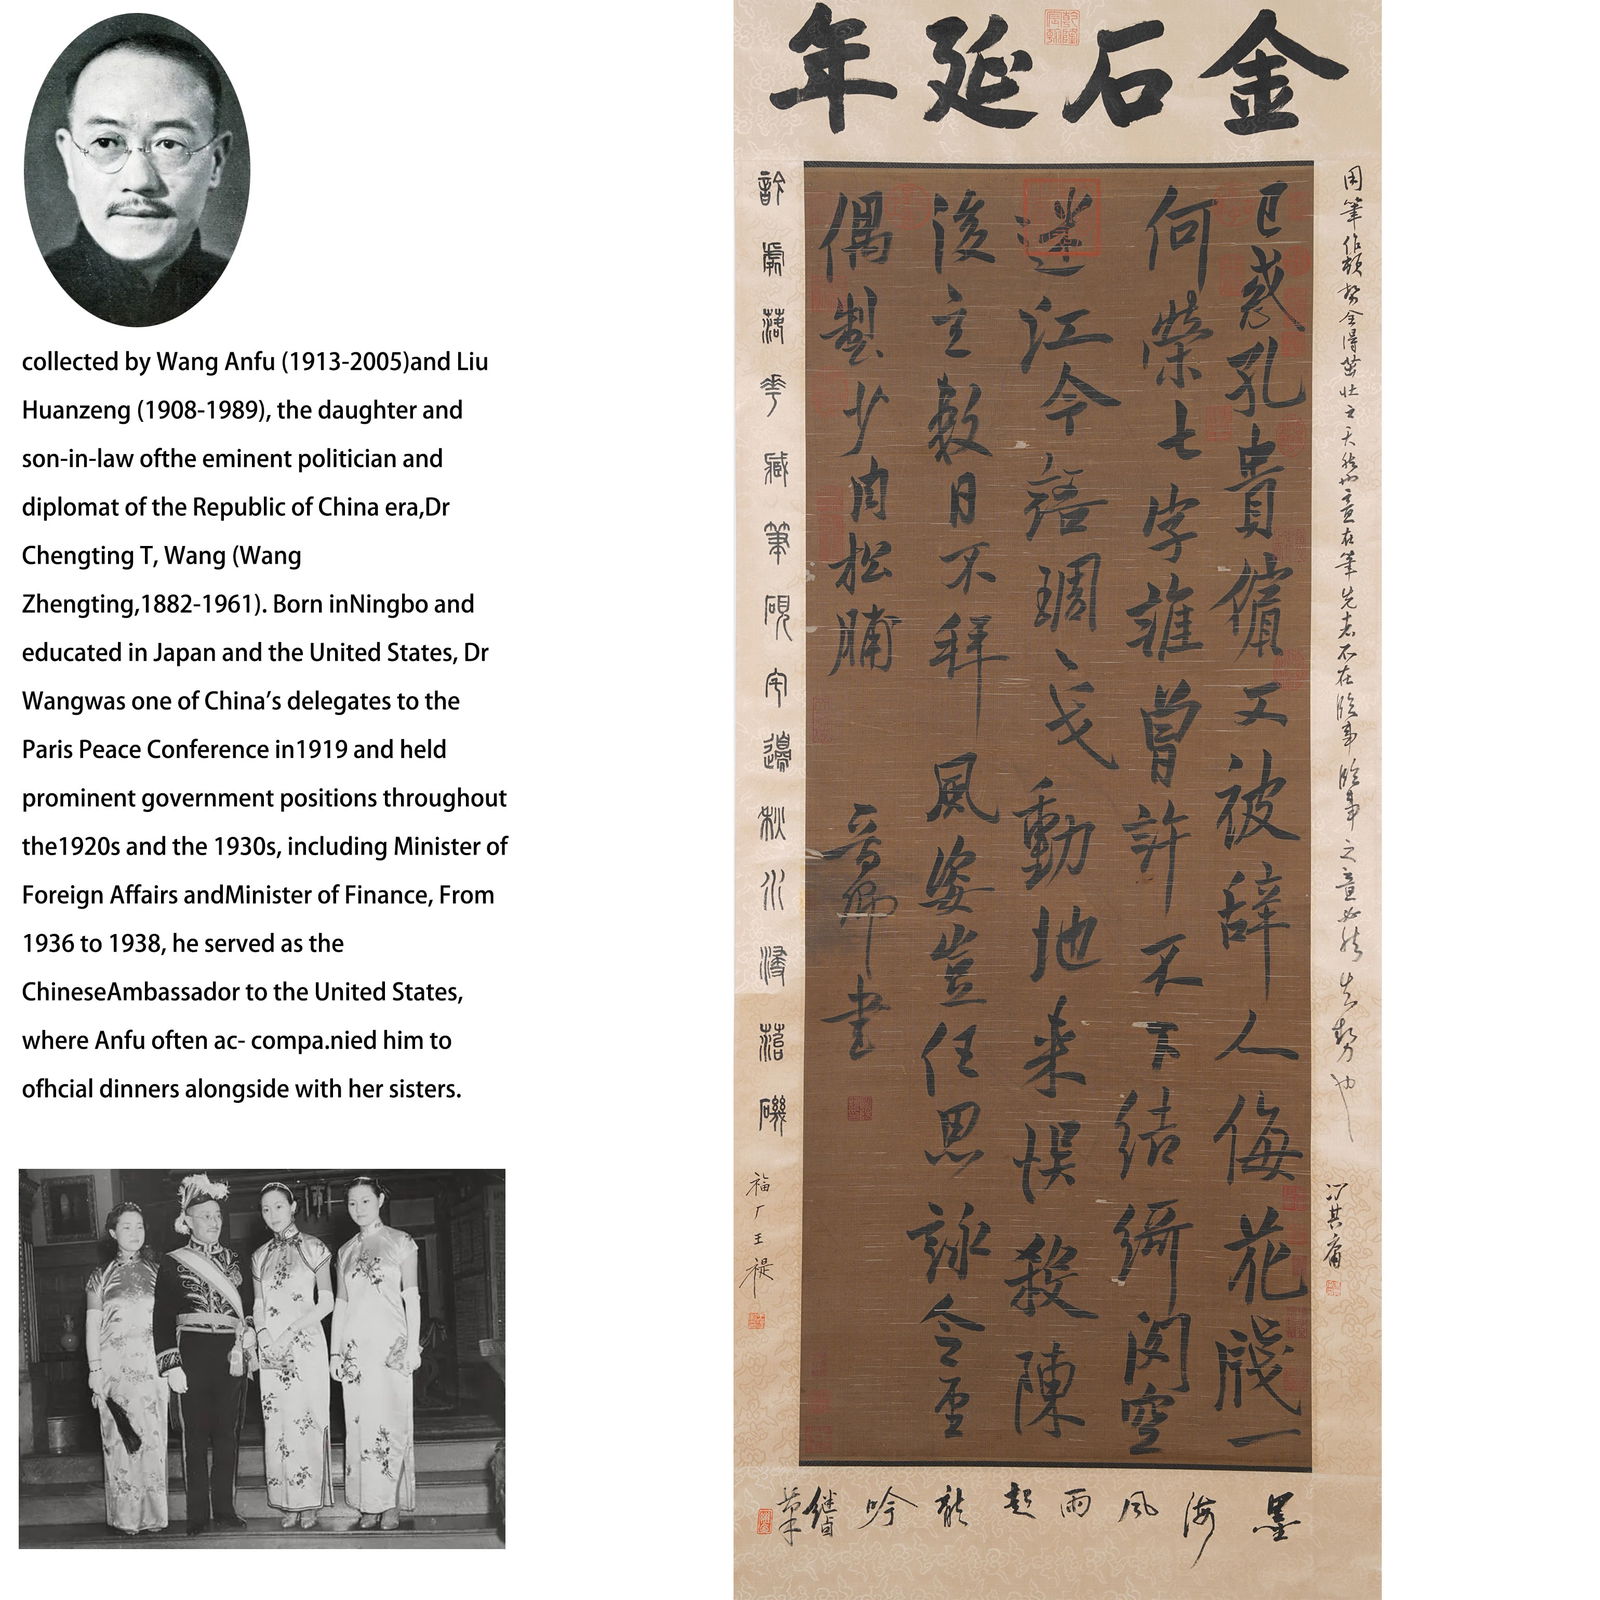 collected by Wang Anfu (1913-2005)and Liu
Huanzeng (1908-1989), the daughter and
son-in-law ofthe eminent politician and
diplomat of the Republic of China era,Dr
Chengting T, Wang (Wang
Zhengting,1882-1961). Born inNingbo and
educated in Japan and the United States, Dr
Wangwas one of China’s delegates to the
Paris Peace Conference in1919 and held
prominent government positions throughout
the1920s and the 1930s, including Minister of
Foreign Affairs andMinister of Finance, From
1936 to 1938, he served as the
ChineseAmbassador to the United States,
where Anfu often ac- compa.nied him to
ofhcial dinners alongside with her sisters.
金石延年
用筆作頓勢令得茁壯之天然也意在筆先者不在臨事臨事之意必然失勢也
馮其庸
已惑孔貴儐又被辞人侮花牋一
何榮七字誰曾許不下结綺閣空
迷江令語琱戈動地来悮殺陳
後主數日不拜風姿豈任思詠令垔
偶製少肉松脯
晋卿書
訡處落花臧筆硯字邊秋水浸蓓磯
福厂王禔
墨海風雨起龍吟
继卣